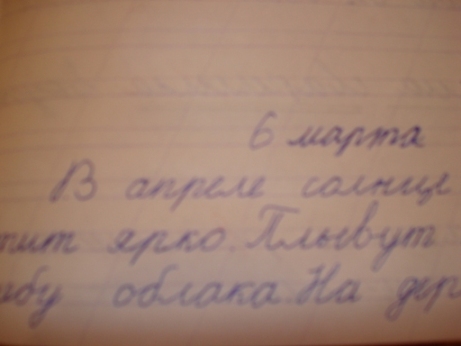 6 марта
В апреле солнце
ярко. Плывут
облака. На